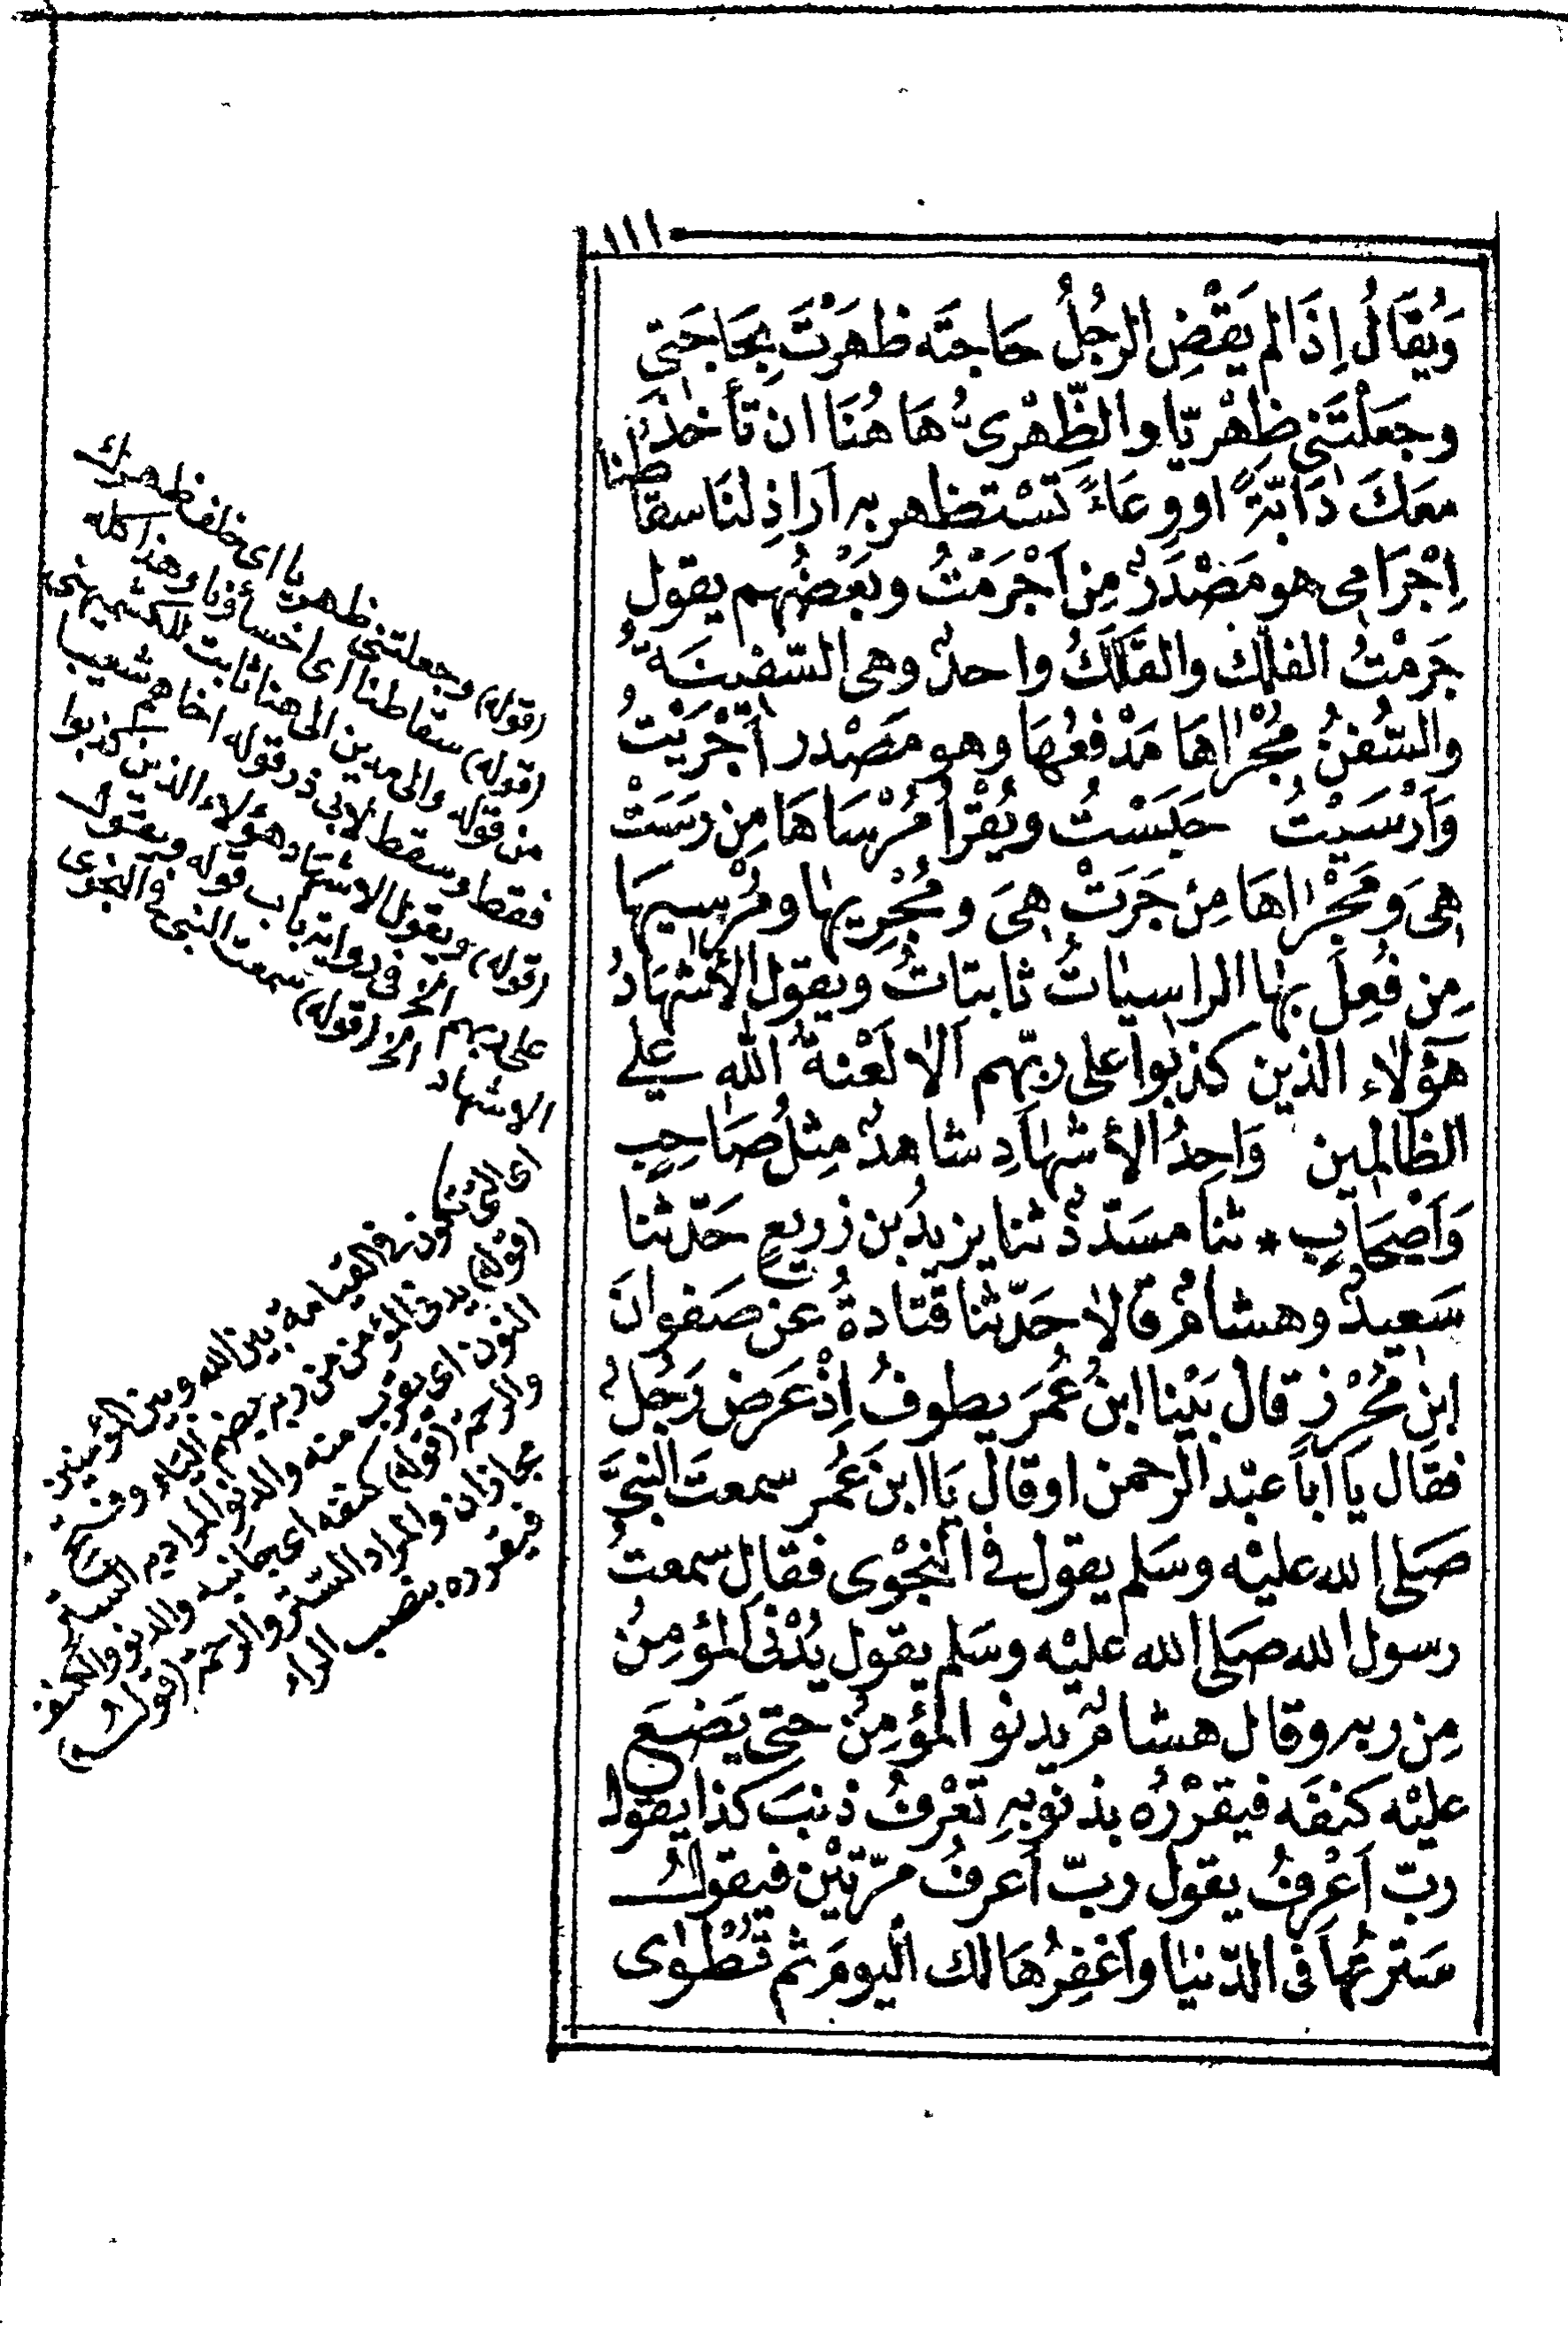 ١١١
وَيُقَالُ اِذَا لم يَقْضِ الرجُلُ حَاجتَه ظهَرْتَ بِحَاجَتِى
وجَعَلْتَنِى ظِهْرِيّا والظِّهْرِىُّ هَاهُنَا ان تَأخذَ
معَكَ دَابّةً او وِعَاءً تَسْتظهر به اَراذِلنَا سقاطنا
اِجْرَامِى هو مَصْدَرٌ مِن اَجْرَمْتُ وبَعْضُهم يقول
جَرَمْتُ الفلكُ والفَلَكُ واحدٌ وهى السّفينَةُ
والسُّفنُ مُجْرَاهَا مَدْفعُهَا وهو مَصْدر اَجْرَيْتُ
وَاَرْسَيْتُ حَبَسْتُ ويُقْرَأ مَرْسَاهَا مِن رَسَتْ
هِىَ وَمَجْرَاهَا مِن جَرَتْ هِىَ ومُجْرِيهَا ومُرْسِيهَا
مِن فُعِلَ بهَا الراسيَاتُ ثابتاتٌ ويقول الأشْهَادُ
هَؤلاء الذين كذبُوا على ربّهم اَلا لَعْنةُ الله على
الظالمين وَاحِدُ الأشهَادِ شاهدٌ مِثلُ صَاحِبٍ
وَاَصْحَابٍ * ثنا مسَدّدٌ ثنا يزيدُ بن زريعٍ حَدّثنا
سَعِيدٌ وهشامٌ قالا حَدّثنا قتَادةُ عن صَفوانَ
ابن مُحْرِزٍ قال بَيْنا ابنُ عُمَرَ يطوفُ اِذْ عَرَض رَجُلٌ
فقَال يَا اَبا عبْد الرحمن او قال يَا ابنَ عُمر سمعتَ النبىَّ
صَلى الله عليْه وسَلم يقول فى النجْوى فقال سمعتُ
رسول الله صَلى الله عليْه وسَلم يقول يُدْنَى المؤمِنُ
مِن ربه وقال هشامٌ يدنو المؤمِنُ حتى يَضَعَ
عليْه كنفَه فيقرّرُه بذنوبهِ تعْرفُ ذنبَ كذا يقولُ
ربّ اَعْرِفُ يقول ربّ اَعرفُ مرّتيْن فيقولُ
سَترتُهَا فى الدّنيَا واَغفِرُهَا لك اليومَ ثم تُطْوَى
(قوله) وجعلتنى ظهريا اى خلف ظهرك
(قوله) سقاطنا اى اخسأؤنا وهذا كله
من قوله والى مدين الى هنا ثابت للكشميهنى
فقط وسقط لابى ذر قوله اخاهم شعيبا
(قوله) ويقول الاشهاد هؤلاء الذين كذبوا
على ربهم الخ فى رواية باب قوله ويقول
الاشهاد الخ (قوله) سمعت النبى فى النجوى
اى التى تكون فى القيامة بين الله وبين المؤمنين
(قوله) يدنى المؤمن من ربه بضم الياء وفتح
النون اى يقرب منه والدنو المراد به الستر
والرحمة (قوله) كنفه اى جانبه والدنو والكنف
مجازان والمراد الستر والرحمة (قوله)
فيقرره بنصب الراء